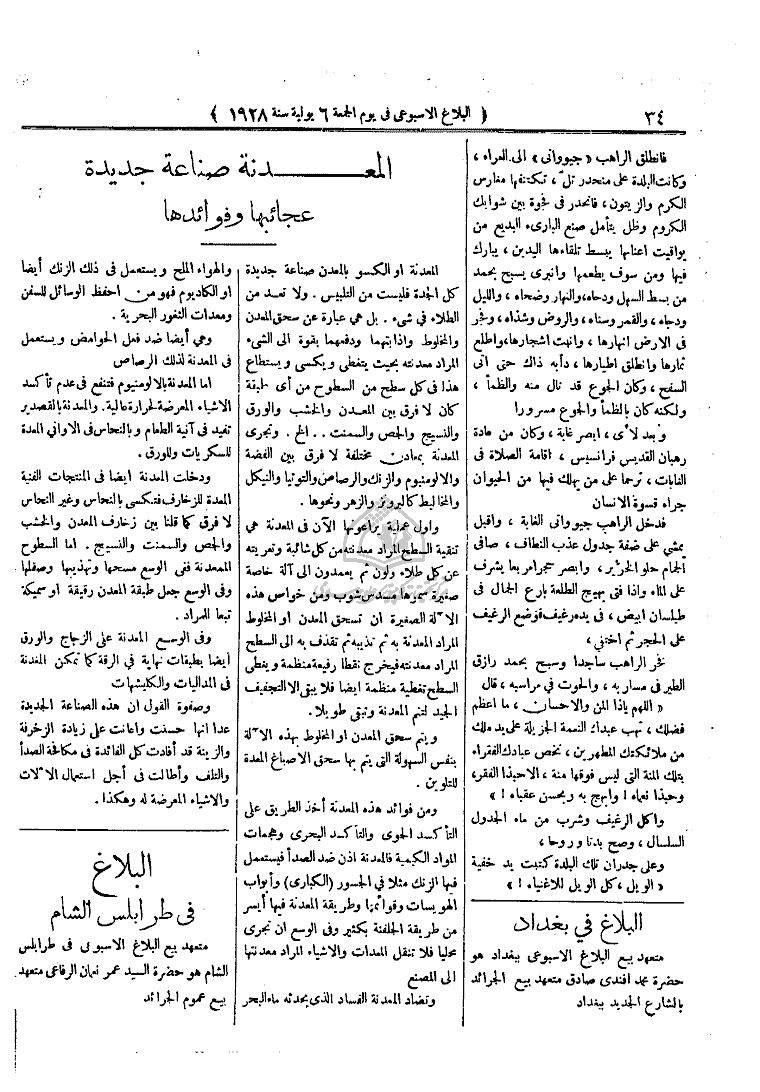 ٣٤
( البلاغ الاسبوعى فى يوم الجمعة ٦ يولية سنة ١٩٢٨ )
فانطلق الراهب « جيووانى » الى العراء ،
وكانت البلدة على منحدر تلّ ، تكتنفها مغارس
الكرم والزيتون ، فانحدر فى فجوة بين شوابك
الكروم وظل يتأمل صنع البارىء البديع من
يواقيت اعنابها يبسط تلقاءها اليدين ، يبارك
فيها ومن سوف يطعمها وانبرى يسبح بحمد
من بسط السهل ودحاه ، والنهار وضحاه ، والليل
ودجاه ، والقمر وسناه ، والروض وشذاه ، وفجر
فى الارض انهارها ، وانبت اشجارها ، واطلع
ثمارها وانطلق اطيارها ، دأبه ذاك حتى اتى
السفح ، وكان الجوع قد نال منه والظمأ ،
ولكنه كان بالظمأ والجوع مسرورا
وبعد لأى ، ابصر غابة ، وكان من عادة
رهبان القديس فرانسيس ، اقامة الصلاة فى
الغابات ، ترحما على من يهلك فيها من الحيوان
جراء قسوة الانسان
فدخل الراهب جيووانى الغابة ، واقبل
يمشى على ضفة جدول عذب النطاف ، صافى
الجمام حلو الخرير ، وابصر حجرا مربعا يشرف
على الماء واذا فتى بهيج الطلعة بارع الجمال فى
طيلسان ابيض ، فى يده رغيف فوضع الرغيف
على الحجر ثم اختفى ،
فخر الراهب ساجدا وسبح بحمد رازق
الطير فى مساربه ، والحوت فى مراسبه ، قال
« اللهم ياذا المن والاحسان ، ما اعظم
فضلك ، تهب عبدك النعمة الجزيلة على يد ملك
من ملائكتك المطهرين ، تخص عبادك الفقراء
بتلك المنة التى ليس فوقها منة ، الاحبذا الفقر ،
وحبذا نعماه ! وابهج به وبحسن عقباه ! »
واكل الرغيف وشرب من ماء الجدول
السلسال ، وصح بدنا وروحا ،
وعلى جدران تلك البلدة كتبت يد خفية
« الويل ، كل الويل للاغنياء ! »
البلاغ في بغداد
متعهد بيع البلاغ الاسبوعى ببغداد هو
حضرة محمد افندى صادق متعهد بيع الجرائد
بالشارع الجديد ببغداد
المعــدنة صناعة جديدة
عجائبها وفوائدها
المعدنة او الكسو بالمعدن صناعة جديدة
كل الجدة فليست من التلبيس . ولا تعد من
الطلاء فى شىء . بل هى عبارة عن سحق المعدن
والمخلوط واذابتهما ودفعهما بقوة الى الشىء
المراد معدنته بحيث يتغطى ويكسى ويستطاع
هذا فى كل سطح من السطوح من أى طبقة
كان لا فرق بين المعدن والخشب والورق
والنسيج والجص والسمنت .. الخ . وتجرى
المعدنة بمعادن مختلفة لا فرق بين الفضة
والالومنيوم والزنك والرصاص والتوتيا والنيكل
والمخاليط كالبرونز والزهر ونحوها .
واول عملية يراعونها الآن فى المعدنة هى
تنقية السطح المراد معدنته من كل شائبة وتعريته
عن كل طلاء ولون ثم يعمدون الى آلة خاصة
صغيرة سموها مسدس شوب ومن خواص هذه
الآلة الصغيرة ان تسحق المعدن او المخلوط
المراد المعدنة به ثم تذيبه ثم تقذف به الى السطح
المراد معدنته فيخرج نقطا رفيعة منظمة ويغطى
السطح تغطية منظمة ايضا فلا يبقى الا التجفيف
الجيد لتتم المعدنة وتبقى طويلا .
ويتم سحق المعدن او المخلوط بهذه الآلة
بنفس السهولة التى يتم بها سحق الاصباغ المعدة
للتلوين .
ومن فوائد هذه المعدنة أخذ الطريق على
التأكسد الجوى والتأكسد البحرى وهجمات
المواد الكيمية فالمعدنة اذن ضد الصدأ فيستعمل
فيها الزنك مثلا فى الجسور ( الكبارى ) وأبواب
الهويسات وقوائمها وطريقة المعدنة فيها أيسر
من طريقة الجلفنة بكثير وفى الوسع ان تجرى
محليا فلا تنقل المعدات والاشياء المراد معدنتها
الى المصنع
وتضاد المعدنة الفساد الذى يحدثه ماء البحر
والهواء الملح ويستعمل فى ذلك الزنك أيضا
او الكاديوم فهو من احفظ الوسائل للسفن
ومعدات الثغور البحرية .
وهى أيضا ضد فعل الحوامض ويستعمل
فى المعدنة لذلك الرصاص
اما المعدنة بالالومنيوم فتنفع فى عدم تأكسد
الاشياء المعرضة لحرارة عالية . والمعدنة بالقصدير
تفيد فى آنية الطعام وبالنحاس فى الاوانى المعدة
للسكريات وللورق .
ودخلت المعدنة ايضا فى المنتجات الفنية
المعدة للزخارف فتكسى بالنحاس وغير النحاس
لا فرق كما قلنا بين زخارف المعدن والخشب
والجص والسمنت والنسيج . اما السطوح
الممعدنة ففى الوسع مسحها وتهذيبها وصقلها
وفى الوسع جعل طبقة المعدن رقيقة او سميكة
تبعا للمراد .
وفى الوسع المعدنة على الزجاج والورق
أيضا بطبقات نهاية فى الرقة كما تمكن المعدنة
فى المداليات والكليشهات
وصفوة القول ان هذه الصناعة الجديدة
عدا انها حسنت واعانت على زيادة الزخرفة
والزينة قد أفادت كل الفائدة فى مكافحة الصدأ
والتلف وأطالت فى أجل استعمال الآلات
والاشياء المعرضة له وهكذا .
البلاغ
فى طرابلس الشام
متعهد بيع البلاغ الاسبوعى فى طرابلس
الشام هو حضرة السيد عمر نعمان الرفاعى متعهد
بيع عموم الجرائد